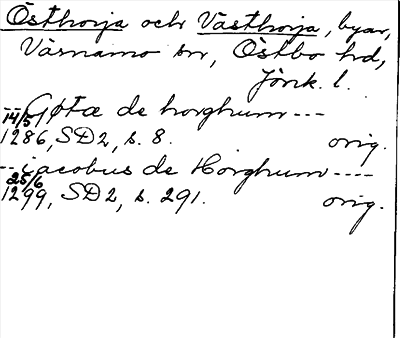 Östhorja och Västhorja, byar,
Värnamo sn, Östbo hd,
Jönk. l.
-- Gøtæ de horghum ---
14/5 1286, SD2, s. 8. orig.
-- iacobus de Horghum ----
25/6 1299, SD2, s. 291. orig.